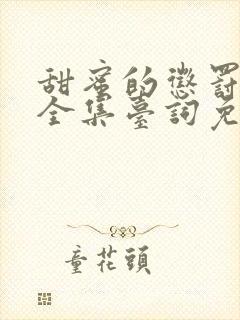 甜蜜的懲罰
全集臺詞免
童花頭